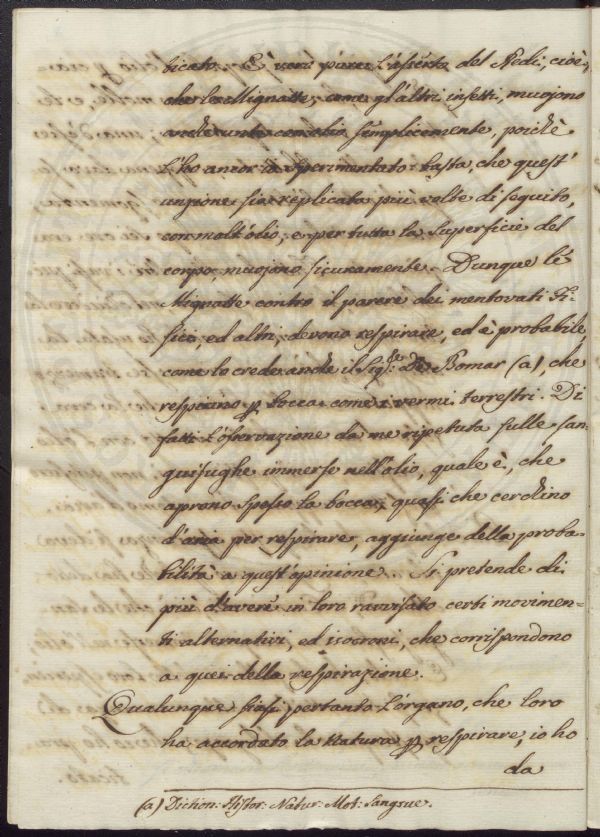 ticato. E' vero pure l'asserto del Redi, cioè,
che le Mignatte, come gl'altri insetti, muojono
anche unte con olio semplicemente, poichè
l'ho ancor io sperimentato: basta, che quest'
unzione sia replicata più volte di seguito,
con molt'olio, e per tutta la superficie del
corpo, muojono sicuramente. Dunque le
Mignatte contro il parere dei mentovati Fi-
sici, ed altri, devono respirare, ed è probabile,
come lo crede anche il Sig.re De Bomar (a), che
respirino p bocca come i vermi terrestri. Di
fatti l'osservazione da me ripetuta sulle san-
guisughe immerse nell'olio, quale è, che
aprono spesso la bocca, quasi che cerchino
d'aria per respirare, aggiunge della proba-
bilità a quest'opinione. Si pretende di
più d'avere in loro ravvisato certi movimen-
ti alternativi, ed isocroni, che corrispondono
a quei della respirazione.
Qualunque siasi pertanto l'organo, che loro
ha accordato la Natura p respirare, io ho
da
(a) Diction: Histor: Natur: Mot: Sangsue.